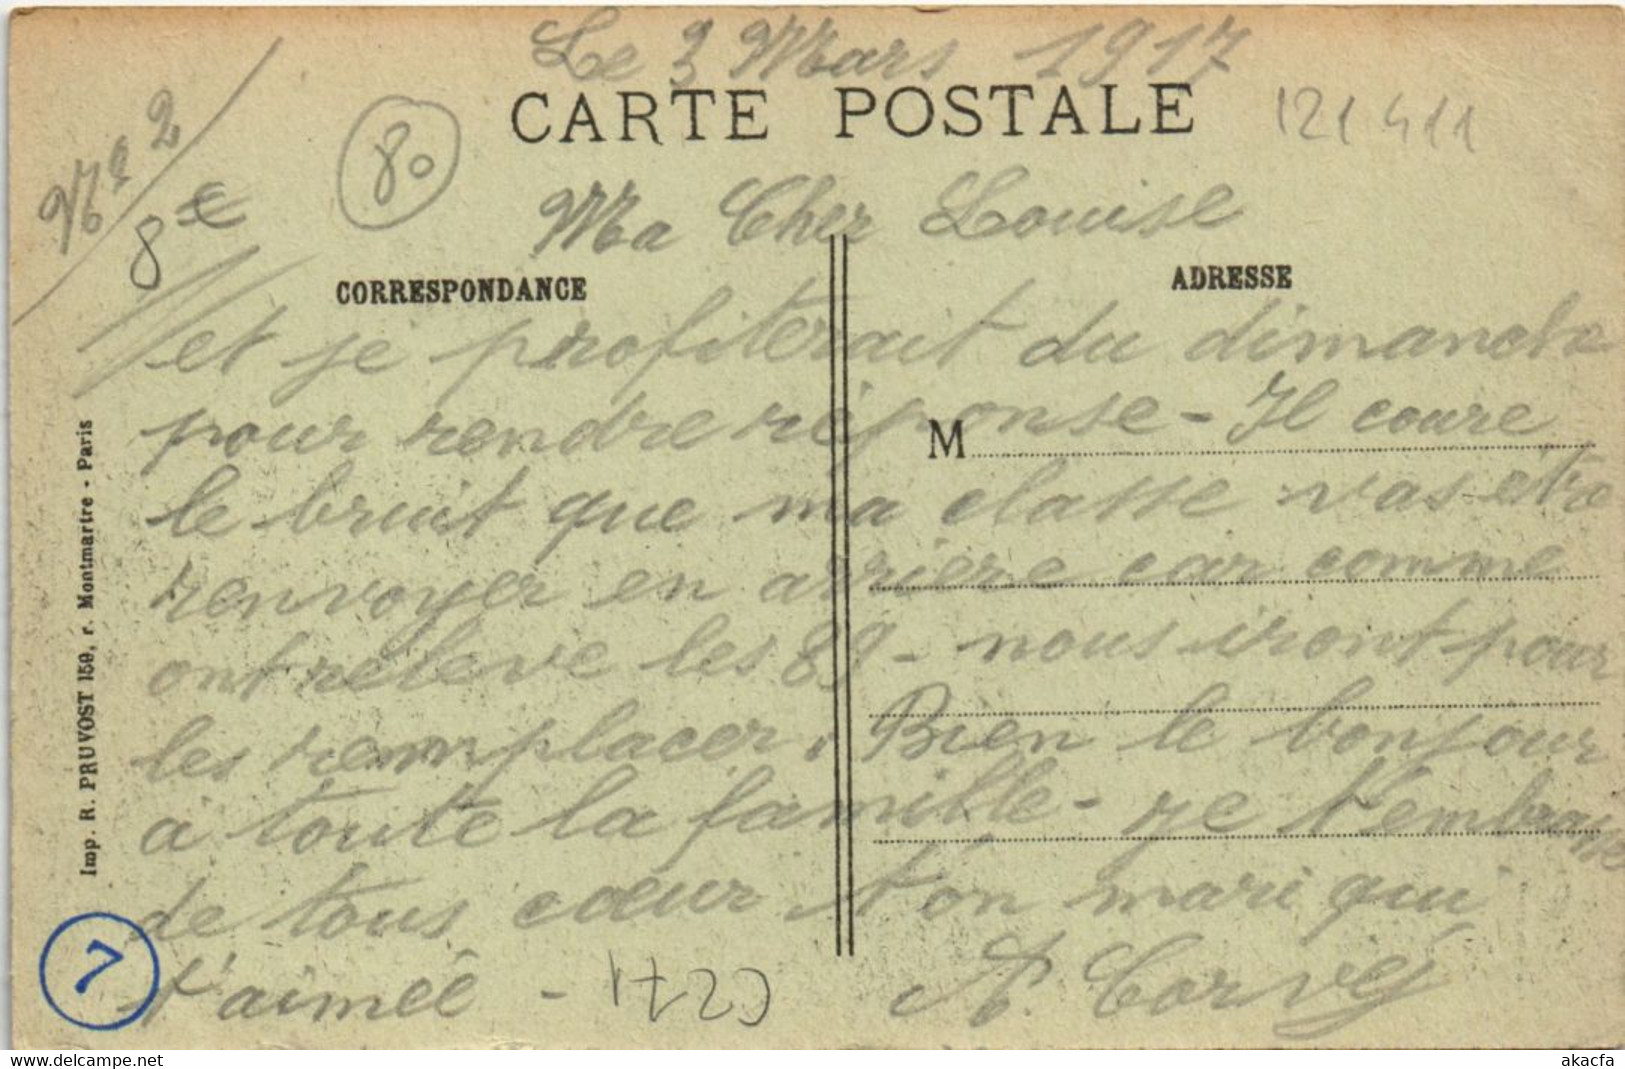 Le 3 Mars 1917
CARTE POSTALE
121411
N° 2
8€
80
Ma Cher Louise
CORRESPONDANCE
ADRESSE
et je profiterait du dimanche
pour rendre réponse - Il coure
M
le bruit que ma classe vas être
renvoyer en arrière car comme
ont relève les 89 - nous iront pour
les remplacer. Bien le bonjour
a toute la famille - je t'embrasse
de tous cœur ton mari qui
t'aimée -
Imp. R. PRUVOST 159, r. Montmartre - Paris
7
akadelcampe.net
akacfa